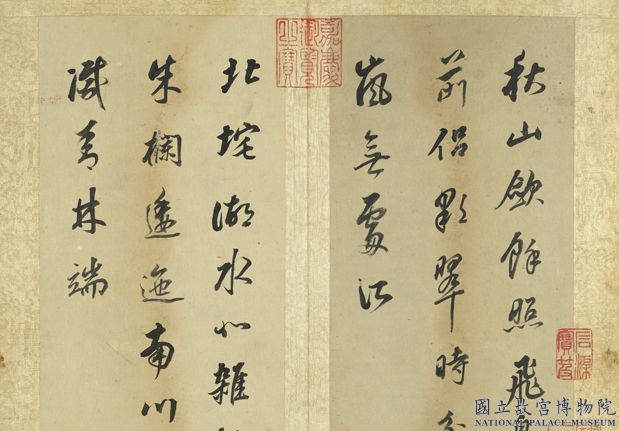 秋山斂餘照飛
前侶彩翠時分
嵐無處所
北垞湖水北雜
朱欄逶迤南川
滅青林端
嘉慶
御覽
之寶
石渠
寶笈
國立故宮博物院
NATIONAL PALACE MUSEUM